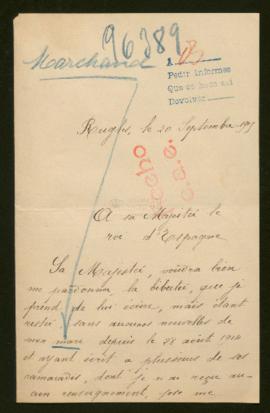 96389
Marchand
Pedir informes
Que se haga así
Devolver
Rugles, le 20 Septembre 1915
hecho
A sa Majesté le
roi d'Espagne
Sa Majesté, voudra bien
me pardonner la liberté, que je
prend de lui écrire, mais étant
restée sans aucunes nouvelles de
mon mari depuis le 28 août 1914
et ayant écrit a plusieurs de ses
camarades, dont je n'ai reçue au-
cun renseignement, j'ose me